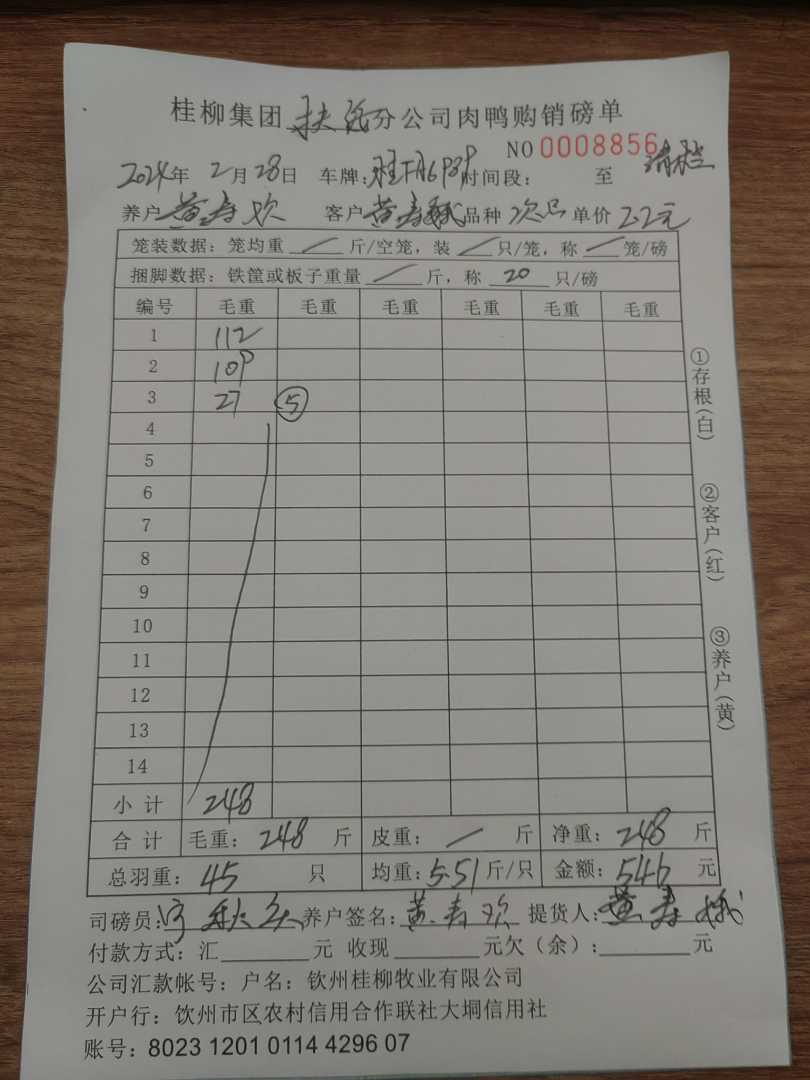 桂柳集团扶绥分公司肉鸭购销磅单
NO 0008856 清栏
2024年2月28日 车牌: 时间段: 至
养户黄寿欢 客户黄寿 品种次品 单价2.2元
笼装数据: 笼均重 / 斤/空笼, 装 / 只/笼, 称 / 笼/磅
捆脚数据: 铁筐或板子重量 / 斤, 称 20 只/磅
编号 毛重 毛重 毛重 毛重 毛重 毛重
1 112
2 109
3 27 ⑤
4
5
6
7
8
9
10
11
12
13
14
小计 248
合计 毛重: 248 斤 皮重: / 斤 净重: 248 斤
总羽重: 45 只 均重: 5.51 斤/只 金额: 546 元
司磅员: 养户签名: 黄寿欢 提货人: 黄寿
付款方式: 汇 元 收现 元欠(余): 元
公司汇款帐号: 户名: 钦州桂柳牧业有限公司
开户行: 钦州市区农村信用合作联社大垌信用社
账号: 8023 1201 0114 4296 07
①存根(白)
②客户(红)
③养户(黄)